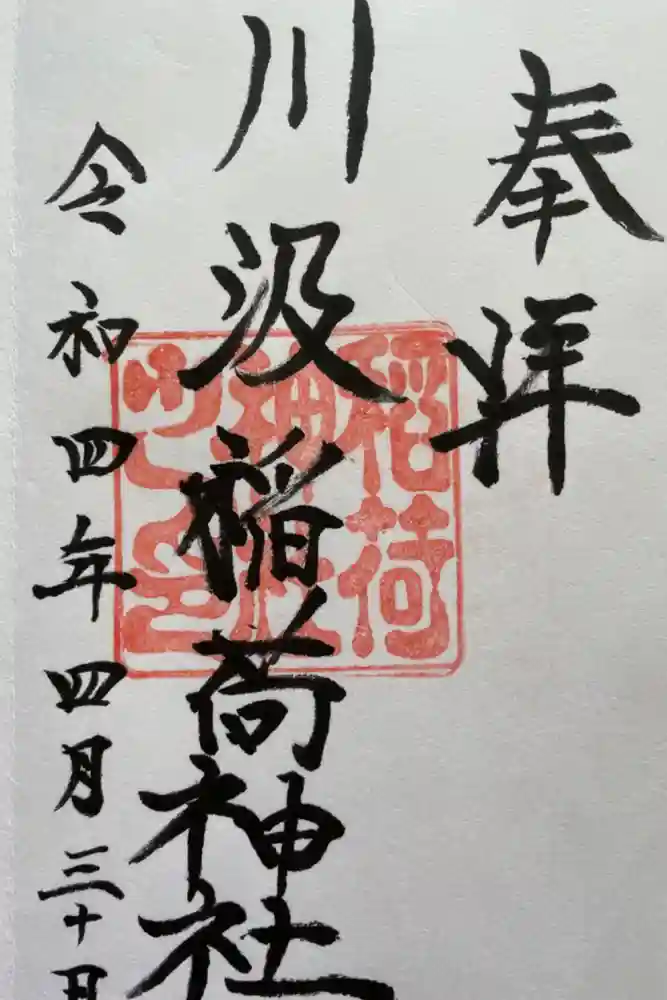 奉拝
川汲稲荷神社
稲荷
神社
令和四年四月三十日